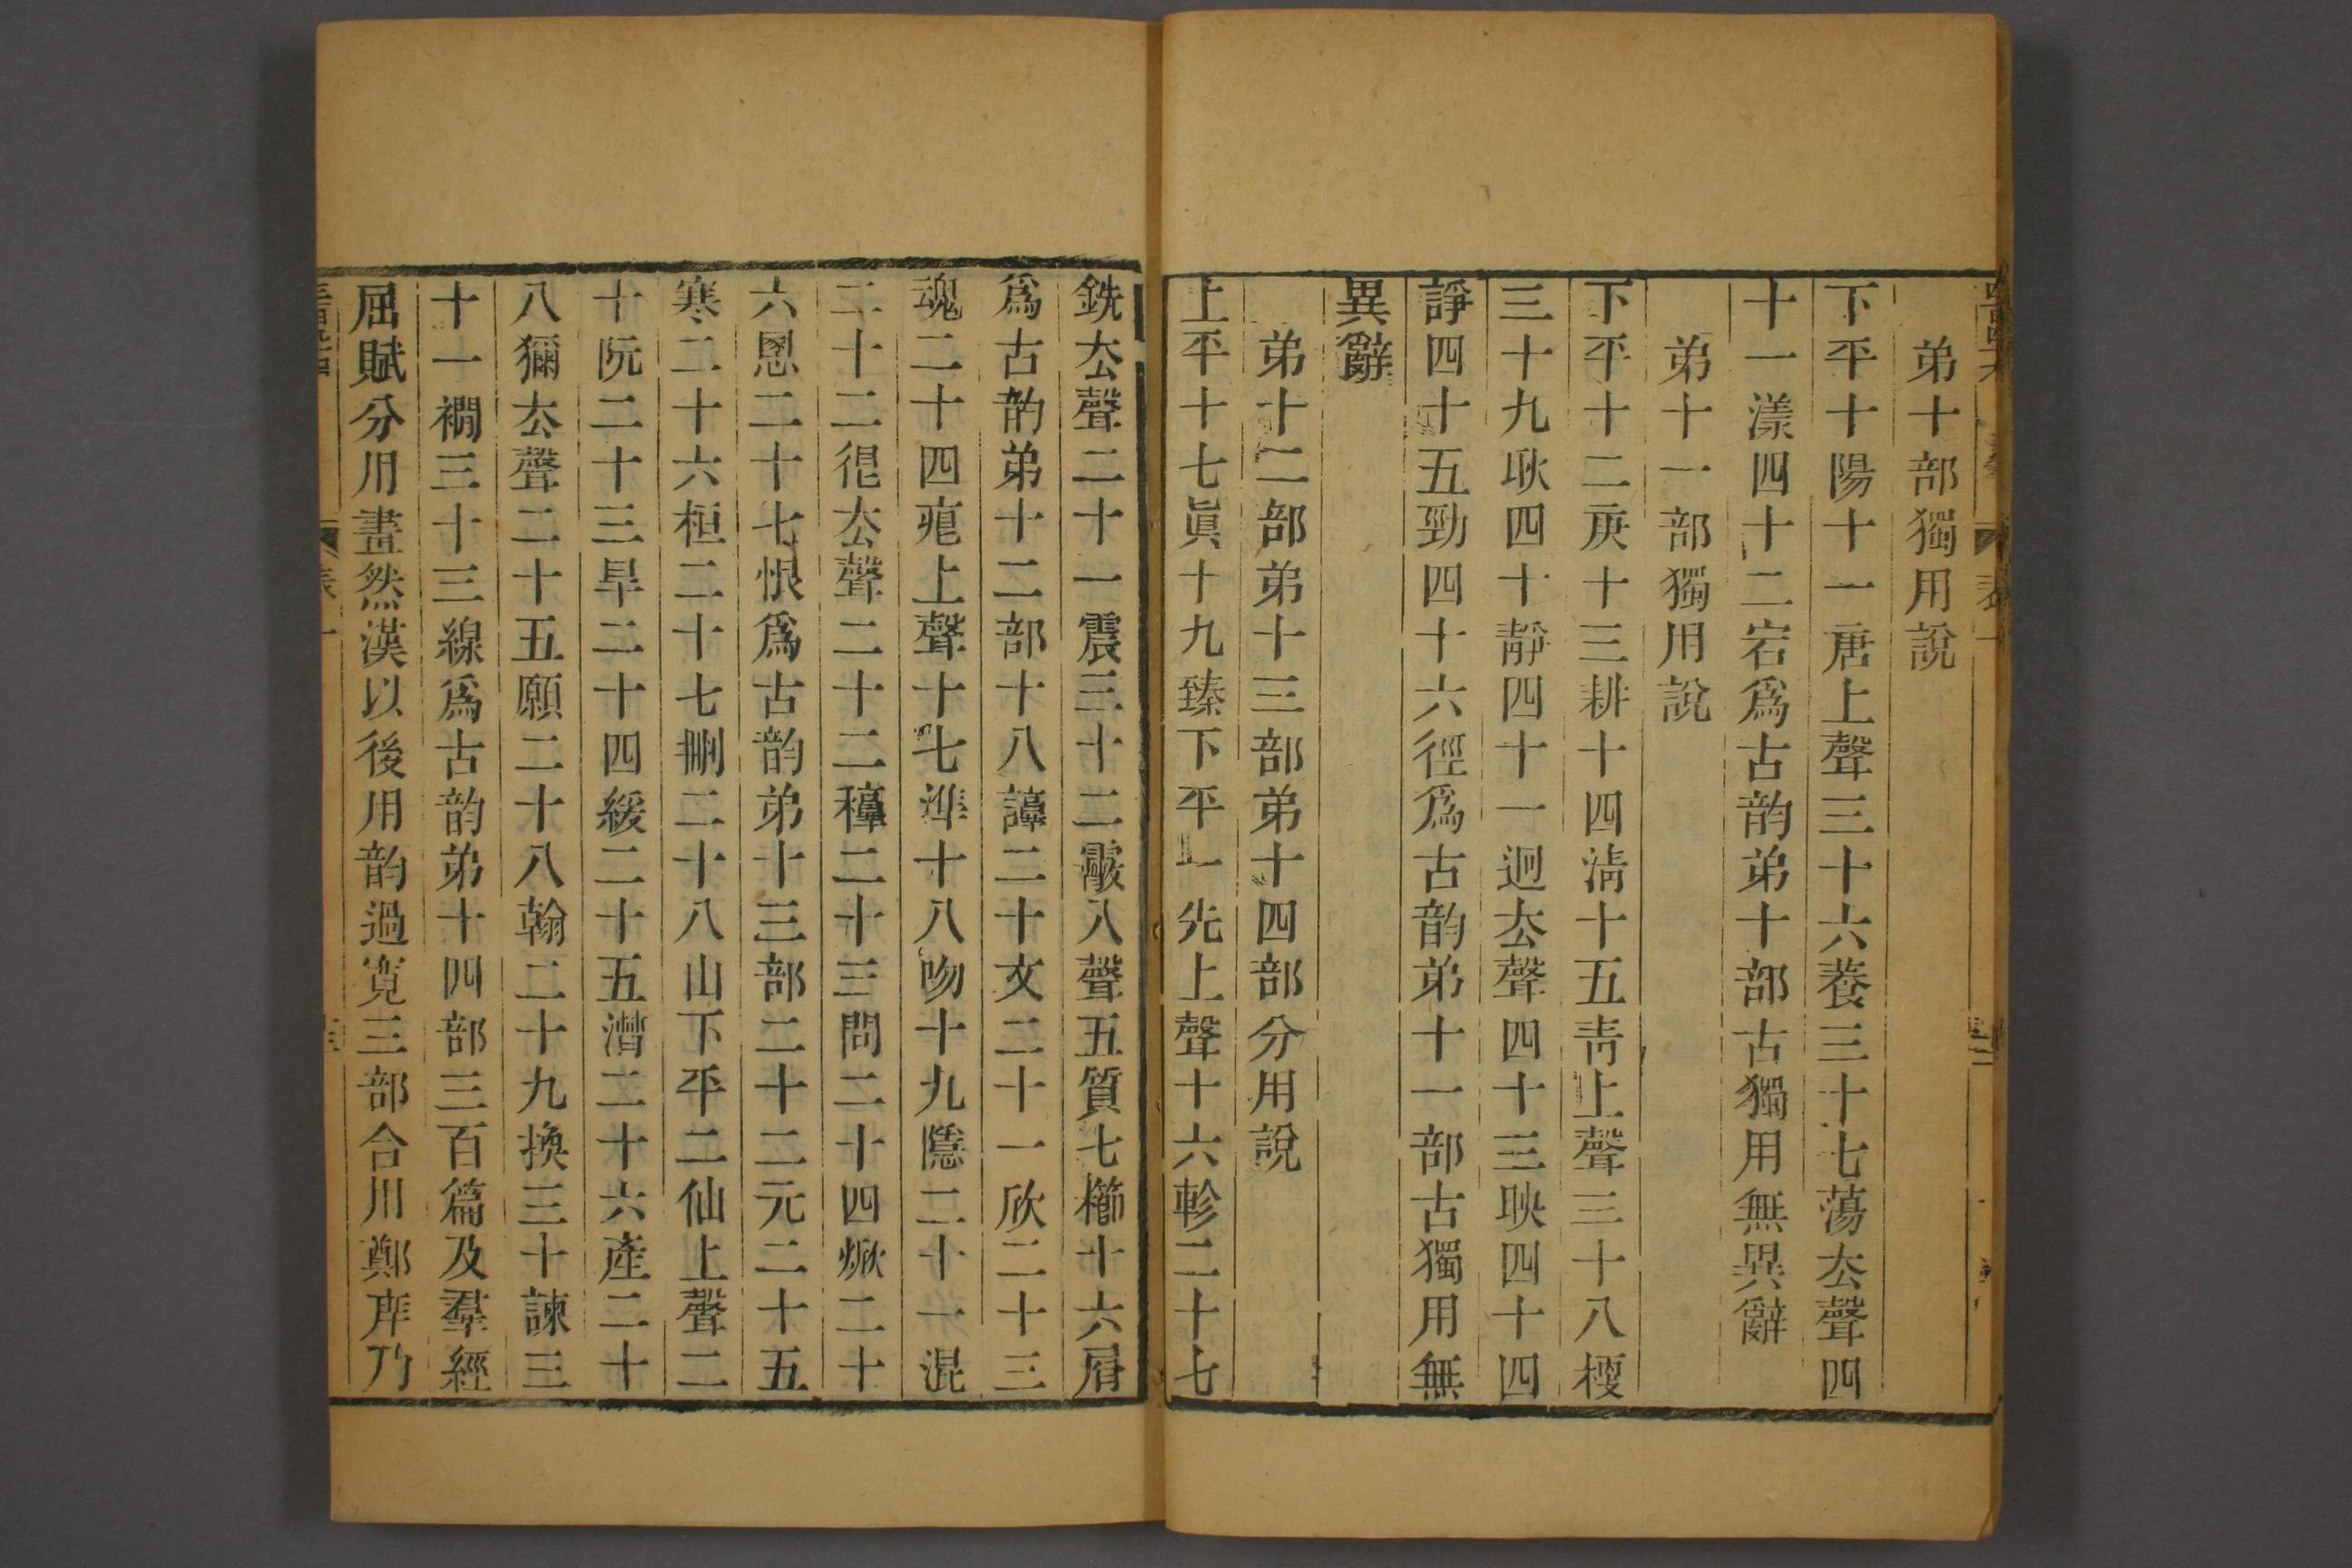 弟十部獨用說
下平十陽十一唐上聲三十六養三十七蕩厺聲四
十一漾四十二宕爲古韵弟十部古獨用無異辭
弟十一部獨用說
下平十二庚十三耕十四淸十五靑上聲三十八梗
三十九耿四十靜四十一迥厺聲四十三映四十四
諍四十五勁四十六徑爲古韵弟十一部古獨用無
異辭
弟十二部弟十三部弟十四部分用說
上平十七眞十九臻下平一先上聲十六軫二十七
銑厺聲二十一震三十二霰入聲五質七櫛十六屑
爲古韵弟十二部十八諄二十文二十一欣二十三
魂二十四痕上聲十七準十八吻十九隱二十一混
二十二很厺聲二十二稕二十三問二十四焮二十
六慁二十七恨爲古韵弟十三部二十二元二十五
寒二十六桓二十七刪二十八山下平二仙上聲二
十阮二十三旱二十四緩二十五潸二十六產二十
八獮厺聲二十五願二十八翰二十九換三十諫三
十一襉三十三線爲古韵弟十四部三百篇及羣經
屈賦分用畫然漢以後用韵過寬三部合用鄭庠乃